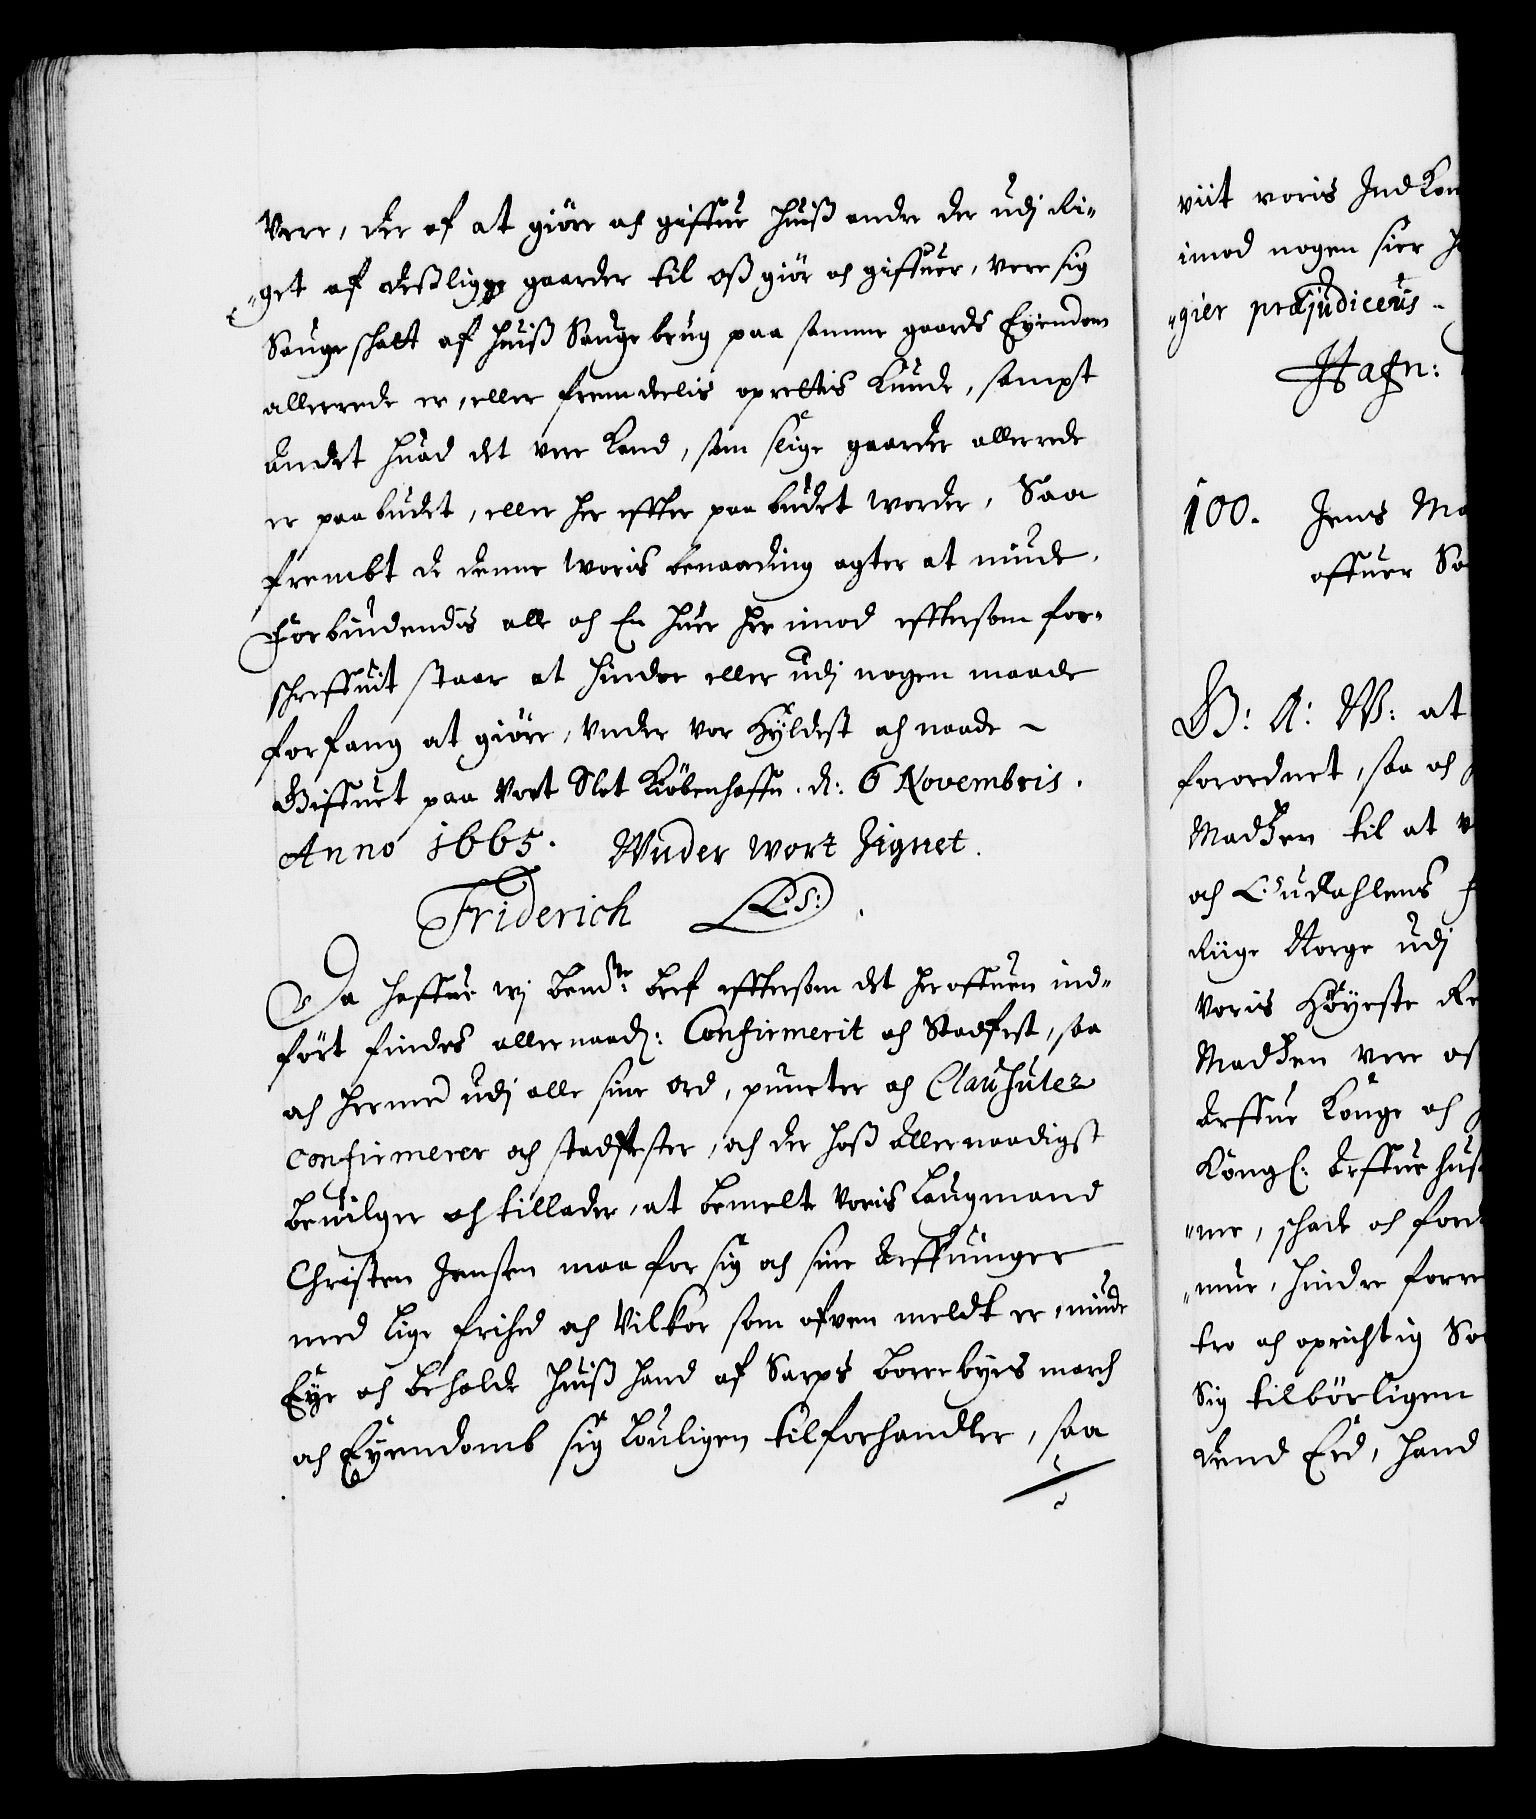 Vere, der af at giöre och giffue huiß andre der udj Ri-
get af desligge gaarder til oß giör och giffuer, vere sig
Sauge schatt af huiß Sauge brug paa samme gaards Eyendom
allerede er, eller fremdeelis oprettis kunde, sampt
andet huad det vere kand, som slige gaarder allerede
er paabudet, eller her effter paabudet worder, Saa
frembt de denne woris benaading agter at niude.
Forbiudendis alle och En huer her imod efftersom for-
schreffuit staar at hindre eller udj nogen maade
forfang at giöre, Under vor Hyldest och naade ~
Giffuet paa Vort Slot Kiöbenhaffn. d: 6 Novembris.
Anno 1665. Wnder Wort Zignet.
Friderich L: S:
Da haffue wj bem.te bref efftersom det her offuen ind-
fört findes allernaad: Confirmerit och Stadfest, saa
och hermed udj alle sine Ord, puncter och Clausuler
confirmerer och stadfester, och der hoß allernaadigst
beuilger och tillader, at bemelte Voris Laugmand
Christen Jensen maa for sig och sine Arffuinger
med lige frihed och Vilkor som ofven meldt er, niude
Eye och beholde huiß hand af Sarps Borre byes march
och Eyendomb sig louligen tilforhandler, saa
viit voris Ind
imod nogen
gier præjudiceris
Hafn:
100. Jens
offuer
G: A: W: at
forordnet, saa och
Madßen til at
och
Riige Norge udj
Voris Höyeste
Madßen vere
Arffue Konge och
Kongl: Arffue
me, schade och
mue, hindre
tro och oprichtig
Sig tilbörligen
dend Eed, hand